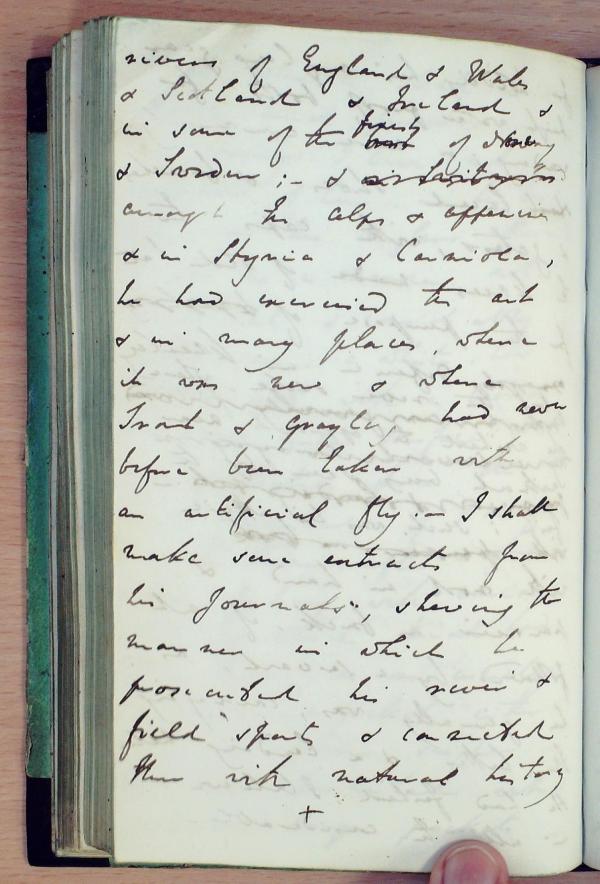 rivers of England & Wales
& Scotland & Ireland &
in some of the finest of Norway
& Sweden ; – &
amongst the alps & appenines
& in Styria & Carniola ,
he had exercised the art
& in many places , where
it was new & where
Trout & Grayling had never
before been taken with
an artificial fly . – I shall
make some extracts from
his Journals , shewing the
manner in which he
prosecuted his river &
field sports & connected
them with natural history
+